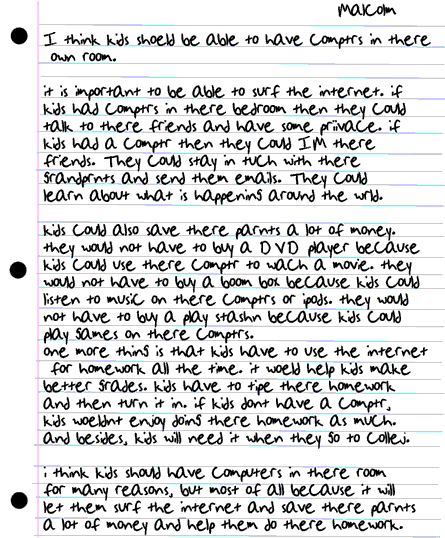 Malcolm
I think kids shoeld be able to have Comptrs in there
own room.
it is important to be able to surf the internet. if
kids had Comptrs in there bedroom then they Could
talk to there friends and have some privace. if
kids had a Comptr then they Could IM there
friends. They Could stay in tuch with there
grandprnts and send them emails. They Could
learn about what is happening around the wrld.
kids Could also save there parnts a lot of money.
they would not have to buy a DVD player because
kids Could use there Comptr to wach a movie. they
would not have to buy a boom box because kids Could
listen to music on there Comptrs or ipods. they would
not have to buy a play stashn because kids Could
play games on there Comptrs.
one more thing is that kids have to use the internet
for homework all the time. it woeld help kids make
better grades. kids have to tipe there homework
and then turn it in. if kids dont have a Comptr,
kids woeldnt enjoy doing there homework as much.
and besides, kids will need it when they go to Collej.
i think kids should have Computers in there room
for many reasons, but most of all because it will
let them surf the internet and save there parnts
a lot of money and help them do there homework.